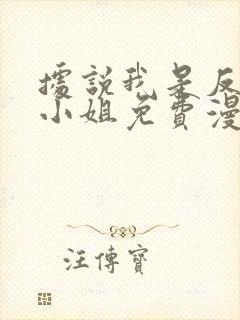 據說我是反
小姐免費漫
汪傳寶